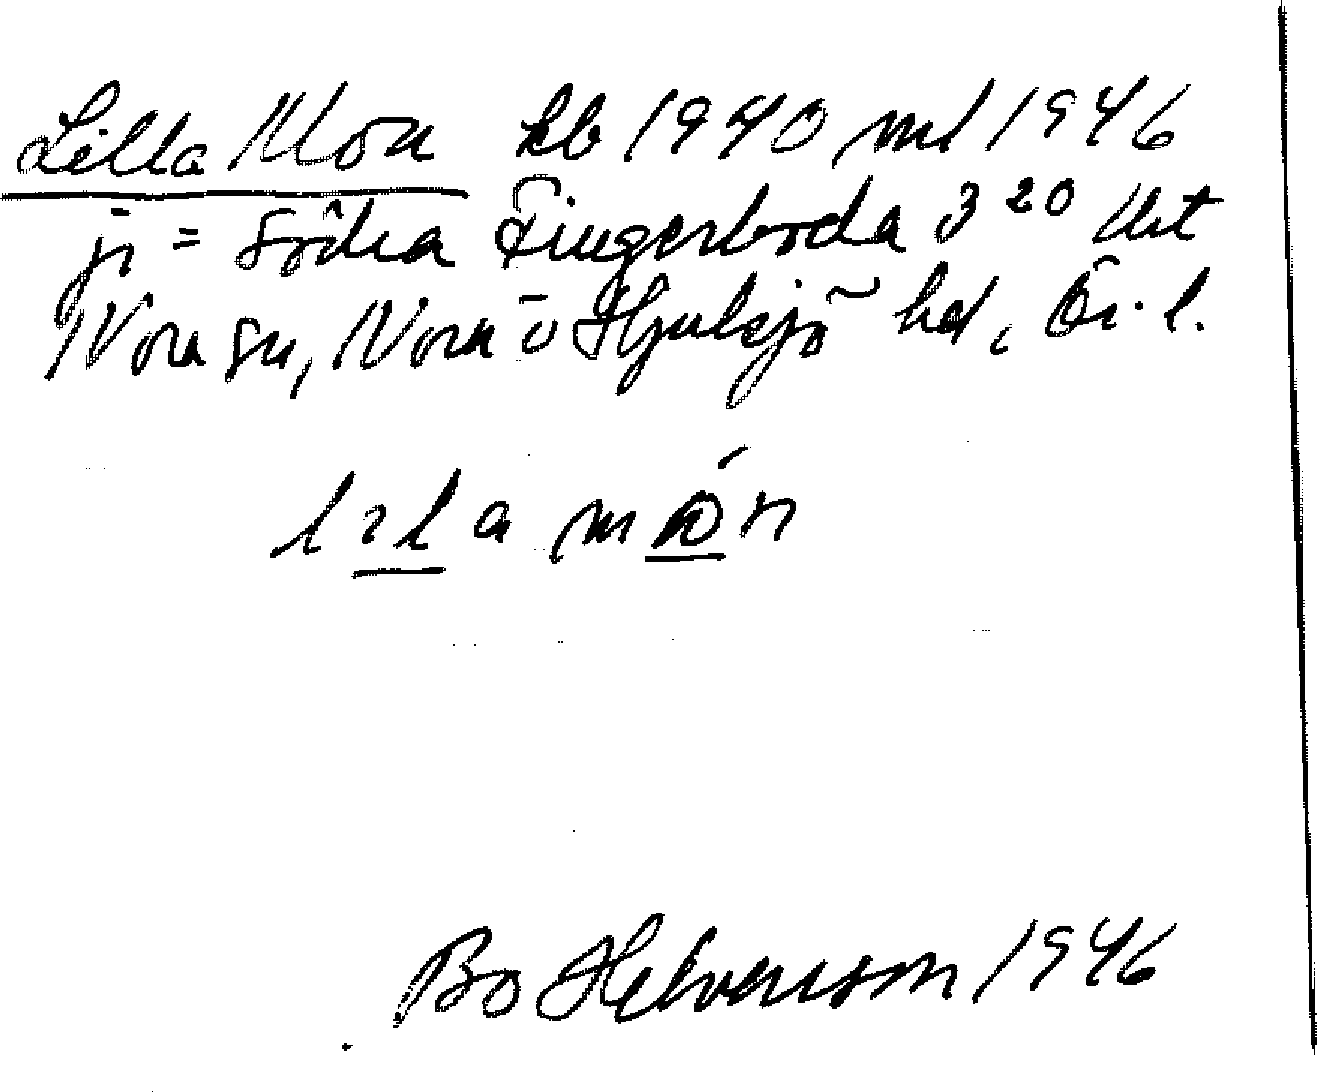 Lilla Mon kb 1940 ml 1946
j = Södra Fingerboda 3 20
Nora sn, Nora o Hjulsjö hd, Ör. l.
lıla món
Bo Helverson 1946